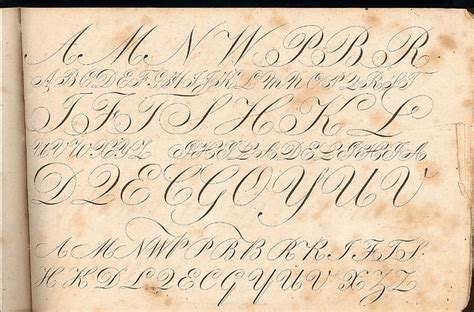 A M N W P B R.
A B C D E F G H I J K L M N O P Q R S T
I F T S H K L
U V W X Y Z
D Q E C G O Y U V
A M N W P P B R K I F T S.
H K D L Q E C G Y U V X Y Z